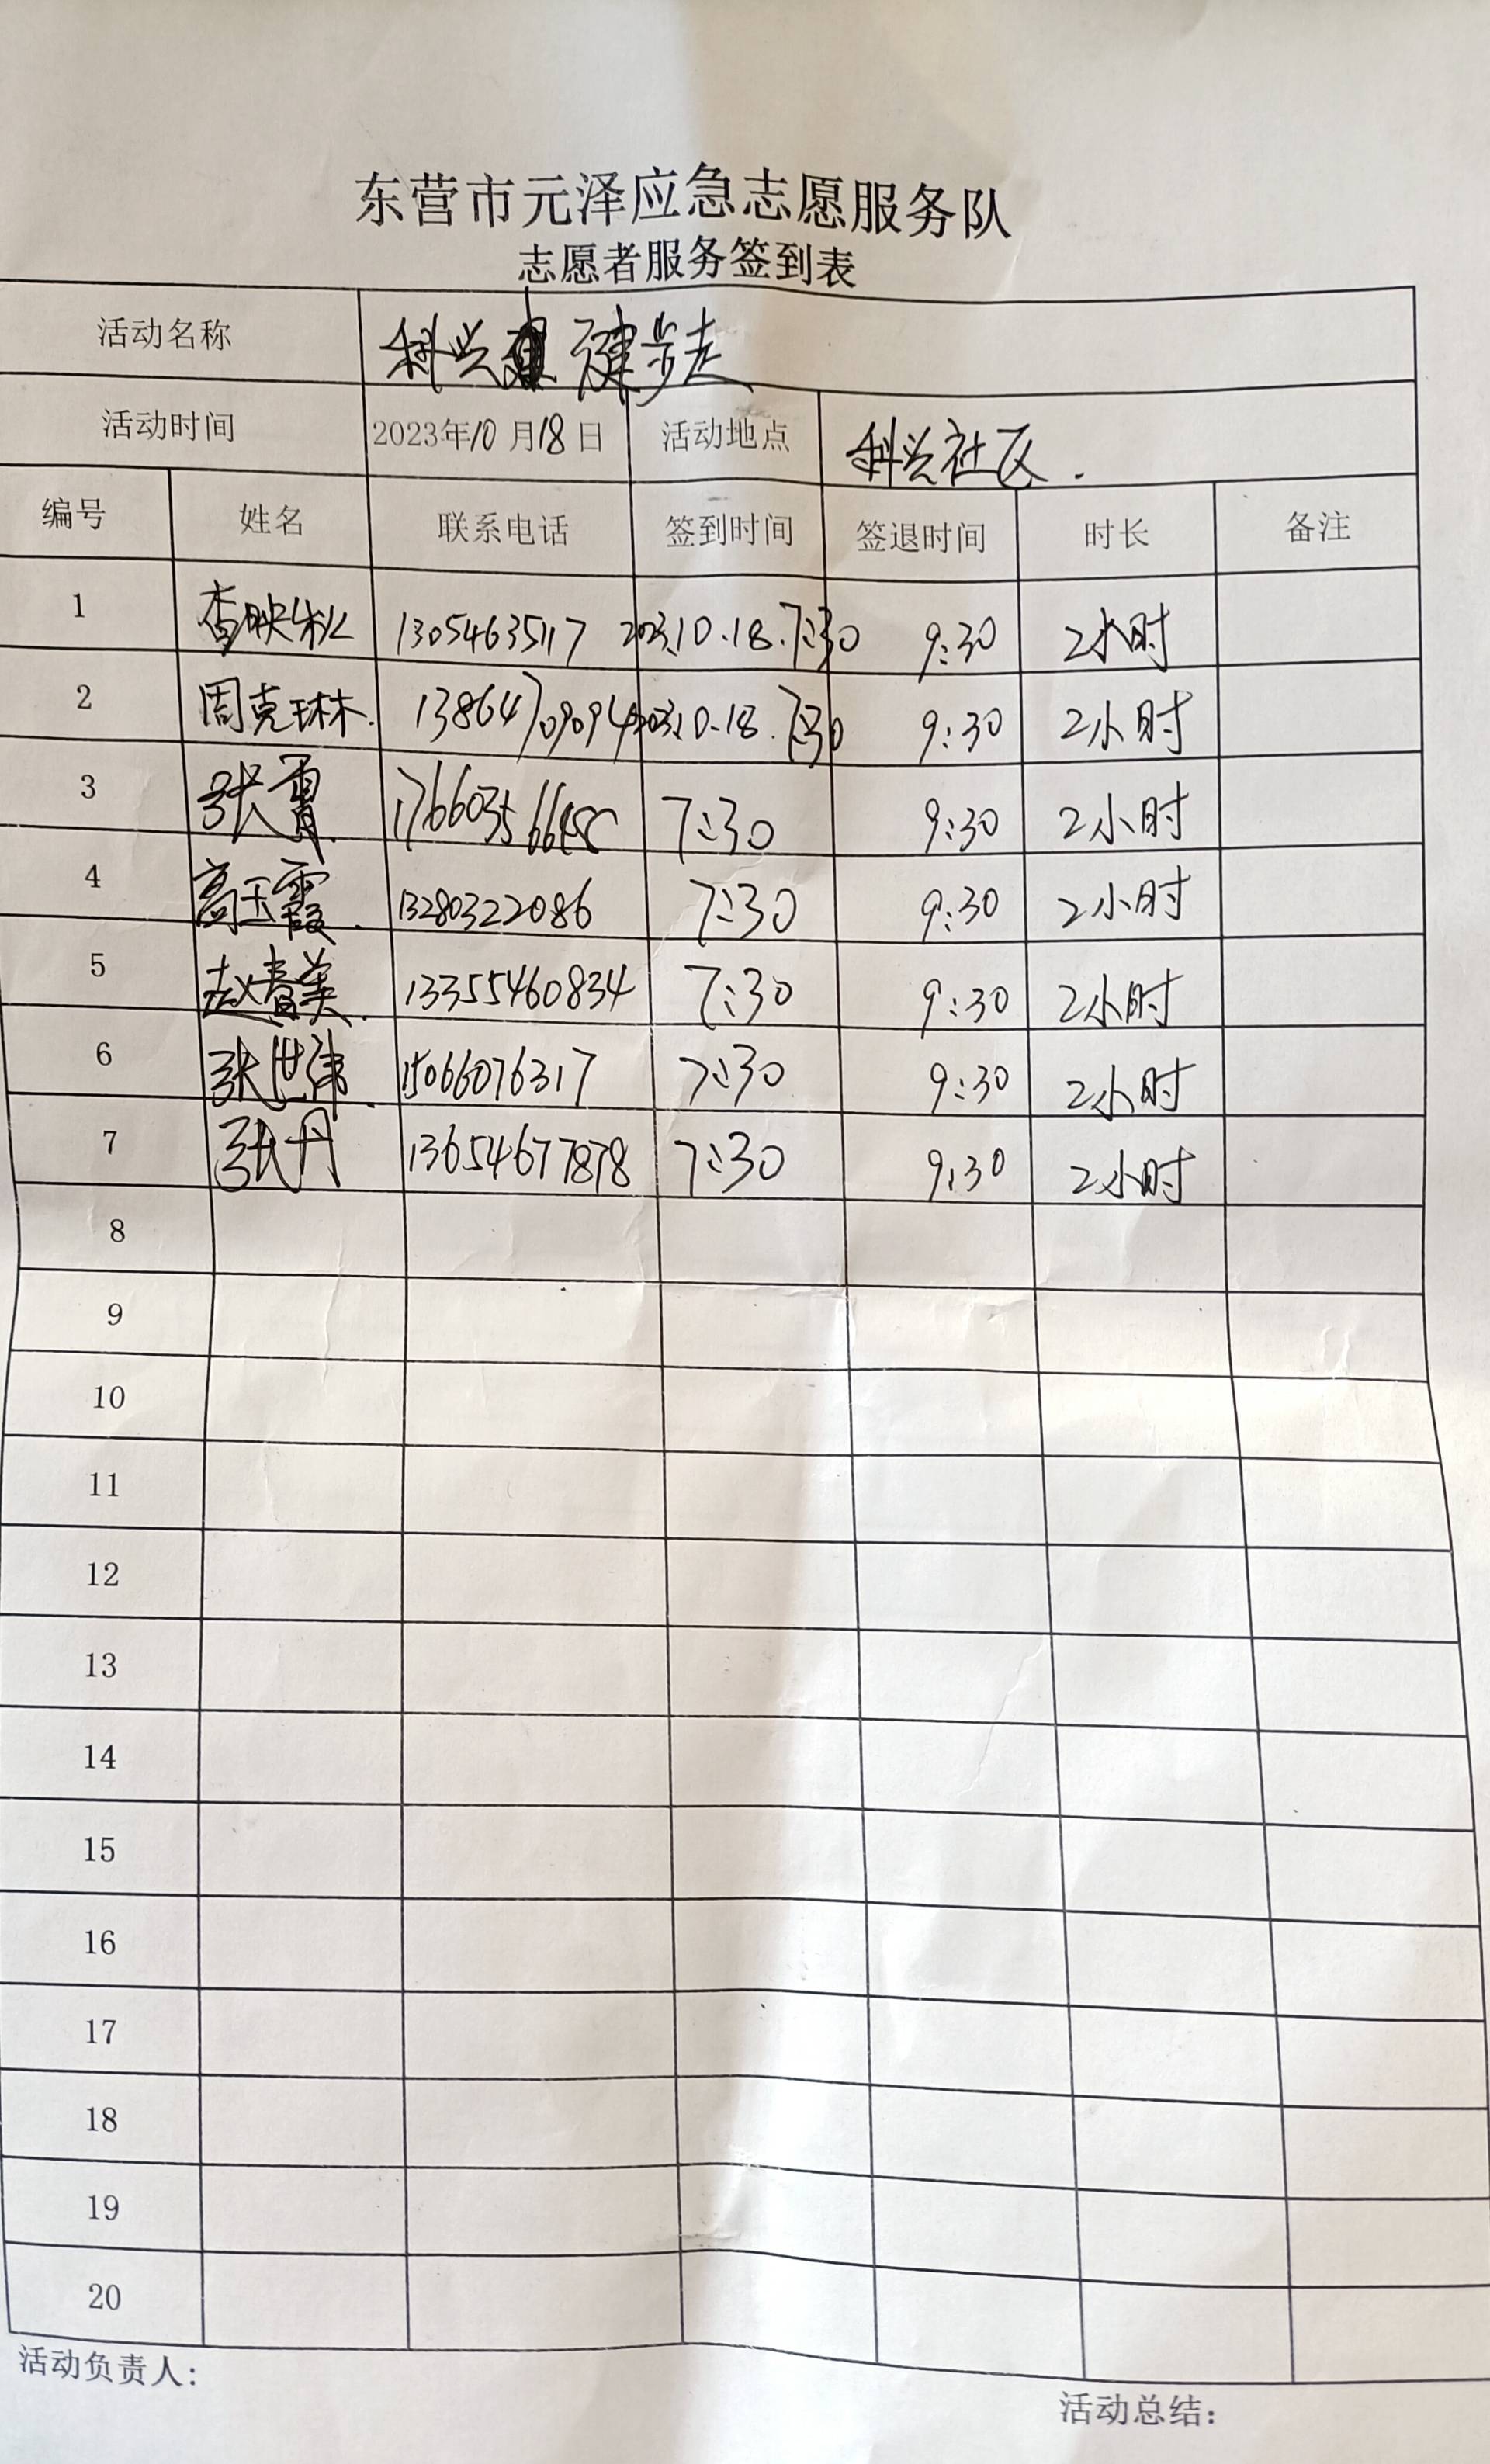 东营市元泽应急志愿服务队
志愿者服务签到表
活动名称 科兴 健步走
活动时间 2023年10月18日 活动地点 科兴社区.
编号 姓名 联系电话 签到时间 签退时间 时长 备注
1 查映秋 13054635117 2023.10.18.7:30 9:30 2小时
2 周克琳. 13864709094 2023.10.18.7:30 9:30 2小时
3 张 7:30 9:30 2小时
4 高玉霞. 13280322086 7:30 9:30 2小时
5 赵春美. 13355460834 7:30 9:30 2小时
6 张世伟. 15066076317 7:30 9:30 2小时
7 张丹 13654677878 7:30 9:30 2小时
8
9
10
11
12
13
14
15
16
17
18
19
20
活动负责人:
活动总结: